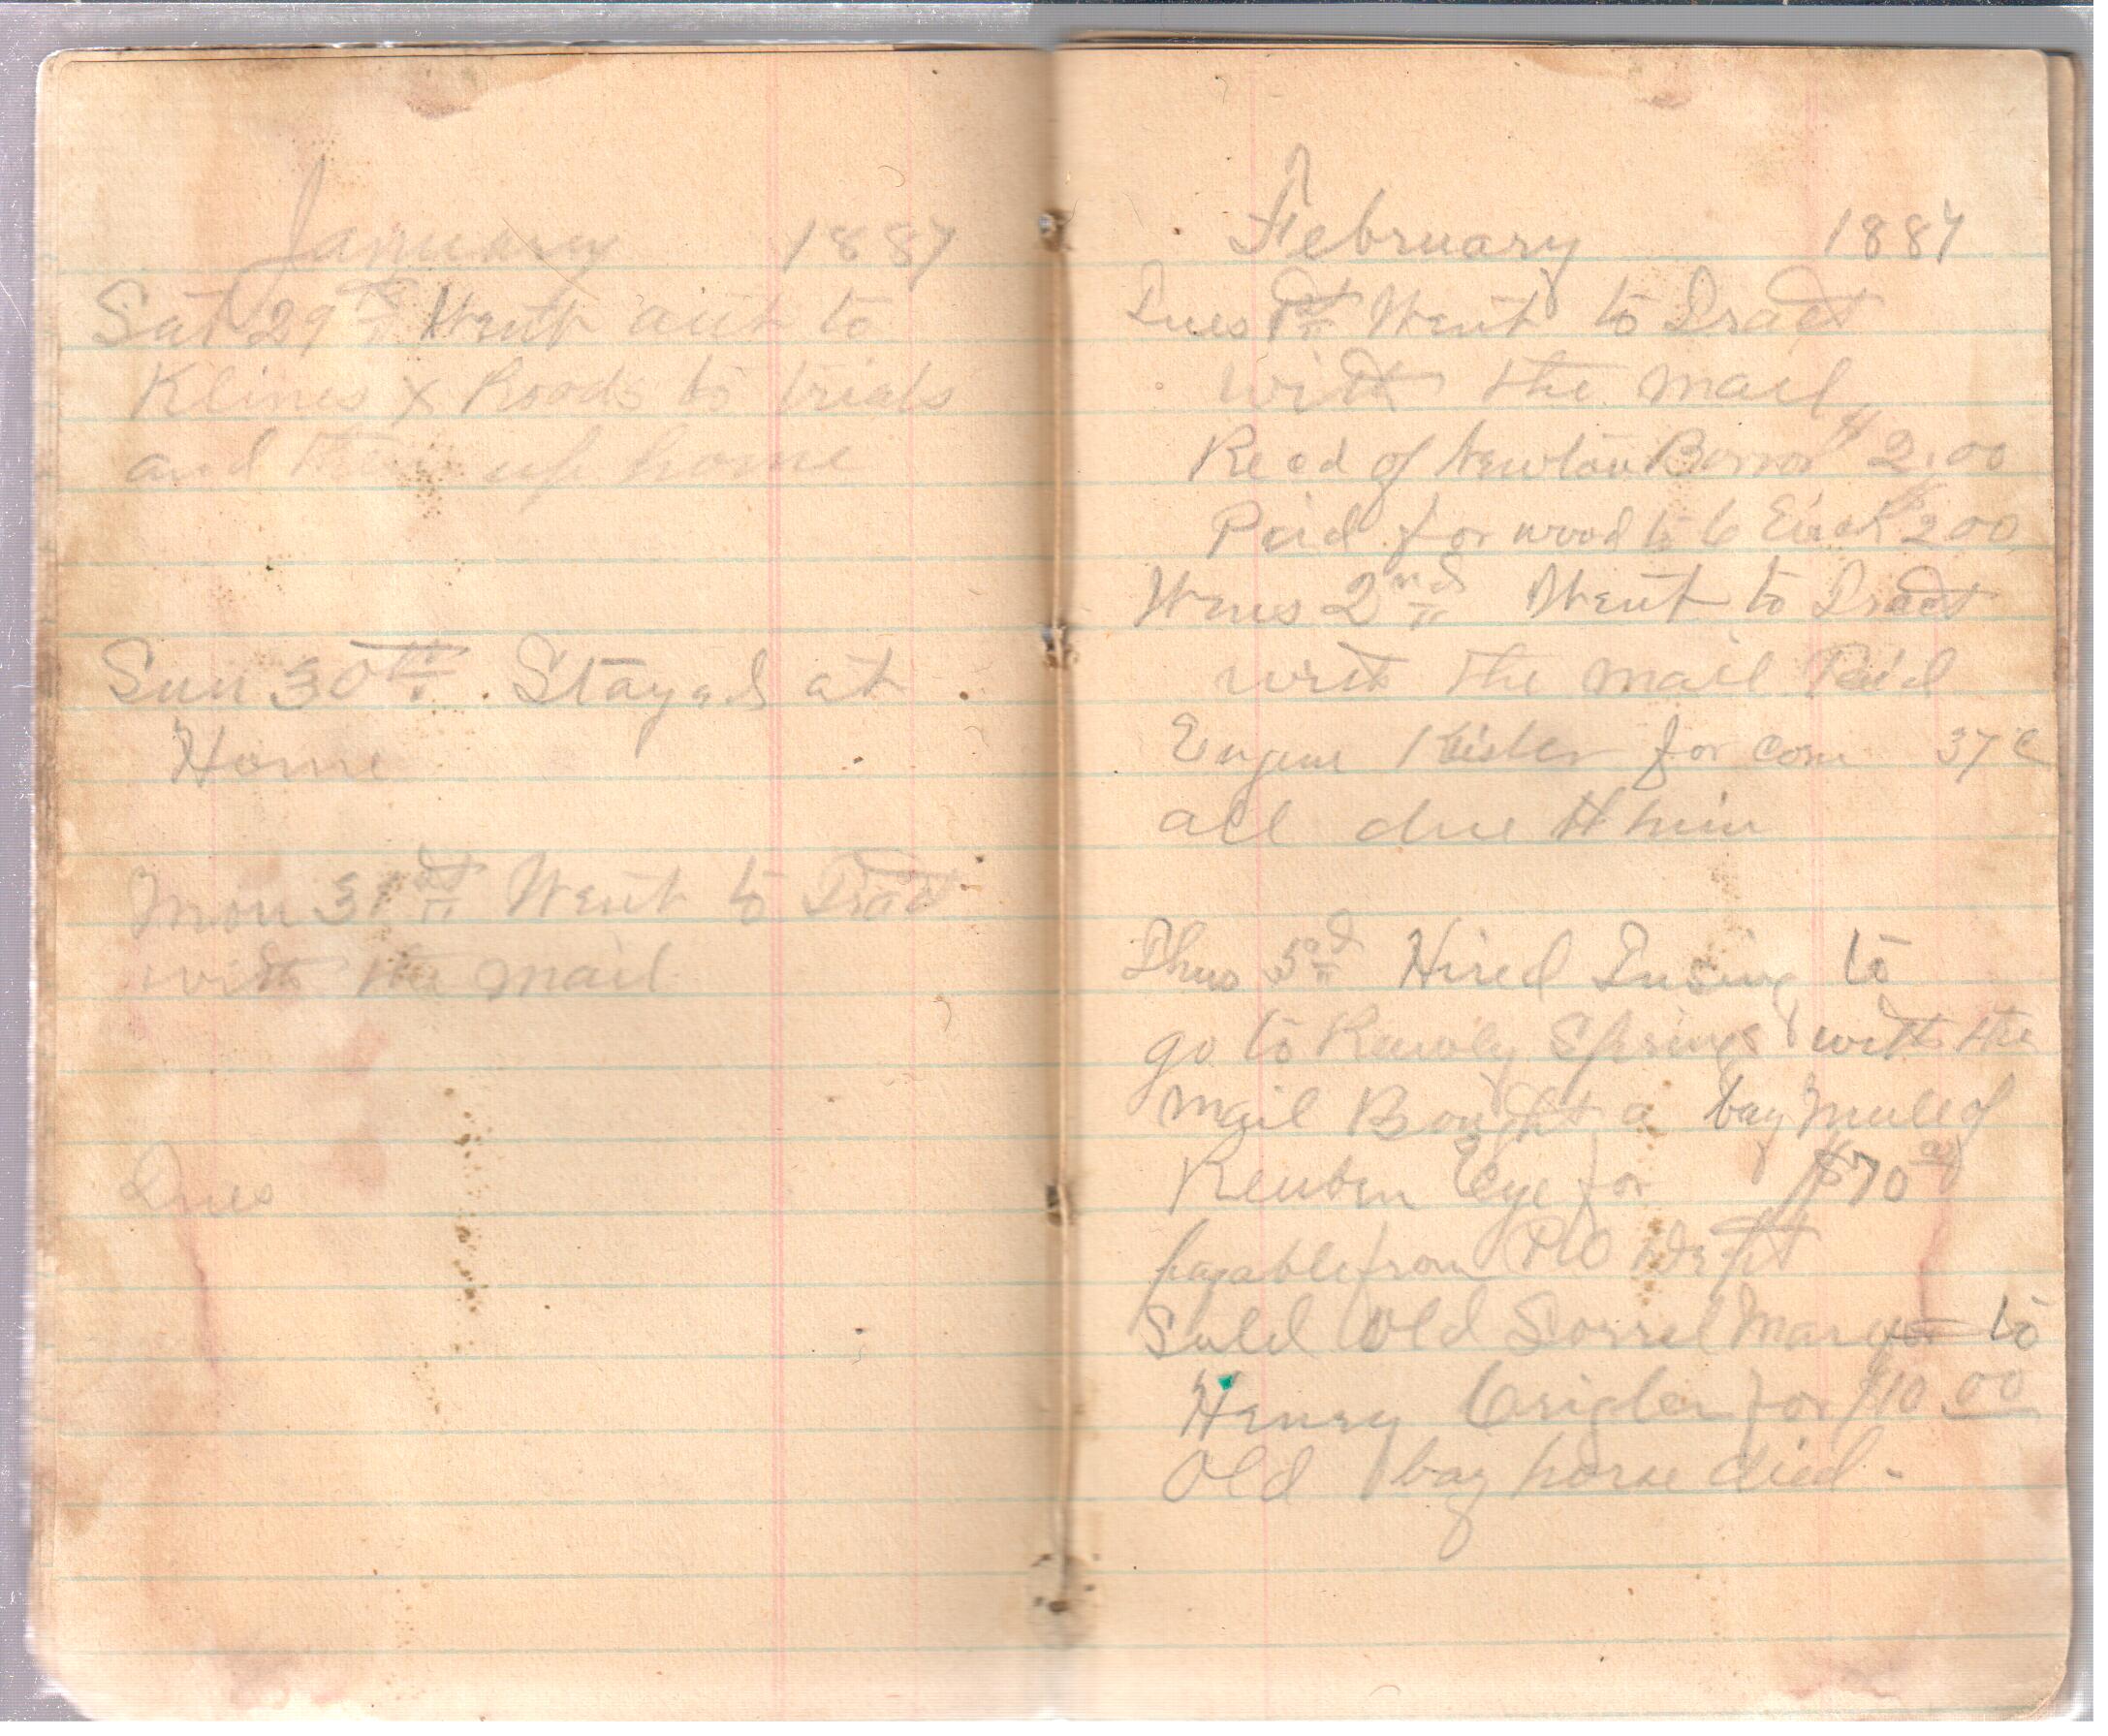 January 1887
Sat 29th Went out to
Klines X Roads to trials
and then up home
Sun 30th. Stayed at
Home
Mon 31st Went to Tract
with the mail
Tues
February 1887
Tues 1st Went to Tract
with the mail
Recd of Newton Borror $2.00
Paid for wood to C $2.00
Wens 2nd Went to Tract
with the mail Paid
Eugene Keister for corn 37c
all due him
Thus 3rd Hired to
go to Rawley Springs with the
mail Bought a bay Mule of
Reuben Eye for $70.00
payable from PO Dept
Sold Old Sorrel Mare for to
Henry Crigler for $10.00
Old bay horse died.